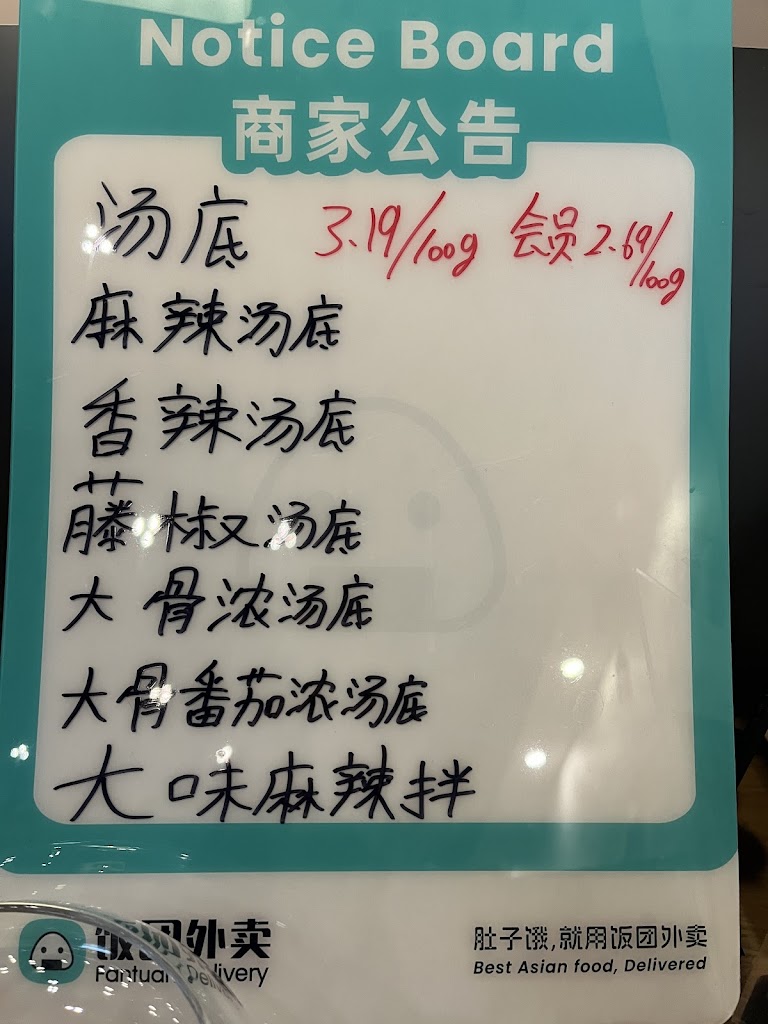 Notice Board
商家公告
汤底 3.19/100g 会员 2.69/100g
麻辣汤底
香辣汤底
藤椒汤底
大骨浓汤底
大骨番茄浓汤底
大味麻辣拌
饭团外卖
Fantuan Delivery
肚子饿,就用饭团外卖
Best Asian food, Delivered